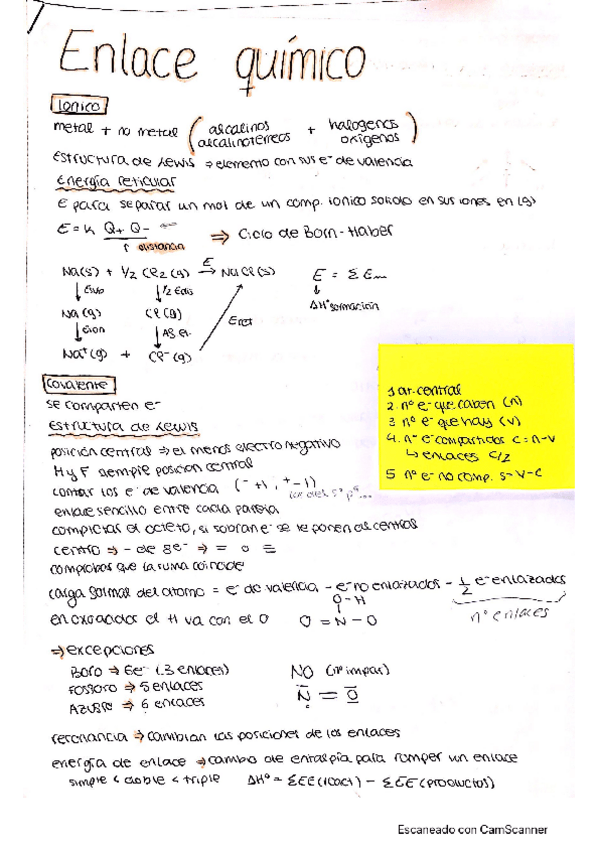 Enlace químico
Ionico
metal + no metal (alcalinos alcalinotérreos + halogenos oxigenos)
Estructura de Lewis ⇒ elemento con sus e⁻ de valencia
Energía reticular
E para separar un mol de un comp. ionico solido en sus iones en (g)
E = K Q+ Q- ⇒ Ciclo de Born-Haber
↑ distancia
Na(s) + 1/2 Cl2(g) →E NaCl(s) E = Σ Em
↓Esub ↓1/2 Edis ↓
Na(g) Cl(g) ΔH°formación
↓Eion ↓AF el. Eret
Na⁺(g) + Cl⁻(g)
Covalente
se comparten e⁻
Estructura de Lewis
posición central ⇒ el menos electronegativo
H y F siempre posición central
contar los e⁻ de valencia (⁻ +1, ⁺ -1)
enlace sencillo entre cada pareja
completar el octeto, si sobran e⁻ se le ponen al central
centro ⇒ - de 8e⁻ ⇒ = o ≡
comprobar que la suma coincide
carga formal del átomo = e⁻ de valencia - e⁻ no enlazados - 1/2 e⁻ enlazados
nº enlaces
O-H
en oxoacidos el H va con el O O = N - O
1 at. central
2. nº e⁻ que caben (n)
3 nº e⁻ que hay (v)
4. nº e⁻ compartidos c = n-v
↳ enlaces c/2
5 nº e⁻ no comp. s = v-c
⇒ excepciones
Boro ⇒ 6e⁻ (3 enlaces) NO (nº impar)
FOSFORO ⇒ 5 enlaces N = O
AZUFRE ⇒ 6 enlaces
resonancia ⇒ cambian las posiciones de los enlaces
energía de enlace ⇒ cambio de entalpía para romper un enlace
simple < doble < triple ΔH° = ΣEE(react) - ΣEE(productos)
Escaneado con CamScanner